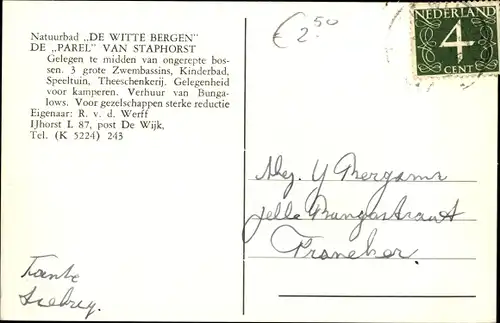 Natuurbad „DE WITTE BERGEN”
DE „PAREL” VAN STAPHORST
Gelegen te midden van ongerepte bos-
sen. 3 grote Zwembassins, Kinderbad,
Speeltuin, Theeschenkerij. Gelegenheid
voor kamperen. Verhuur van Bunga-
lows. Voor gezelschappen sterke reductie
Eigenaar: R. v. d. Werff
IJhorst I. 87, post De Wijk,
Tel. (K 5224) 243
€ 2.50
NEDERLAND
4
CENT
Mej. Y Bergsma
Jelle Bangastraat
Franeker.